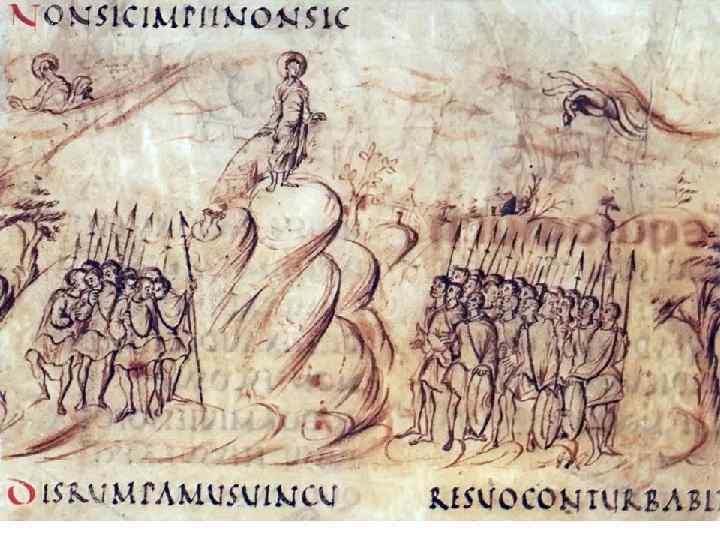 NONSICIMPIINONSIC
DISRUMPAMUSUINCU
RESUOCONTURBABIT